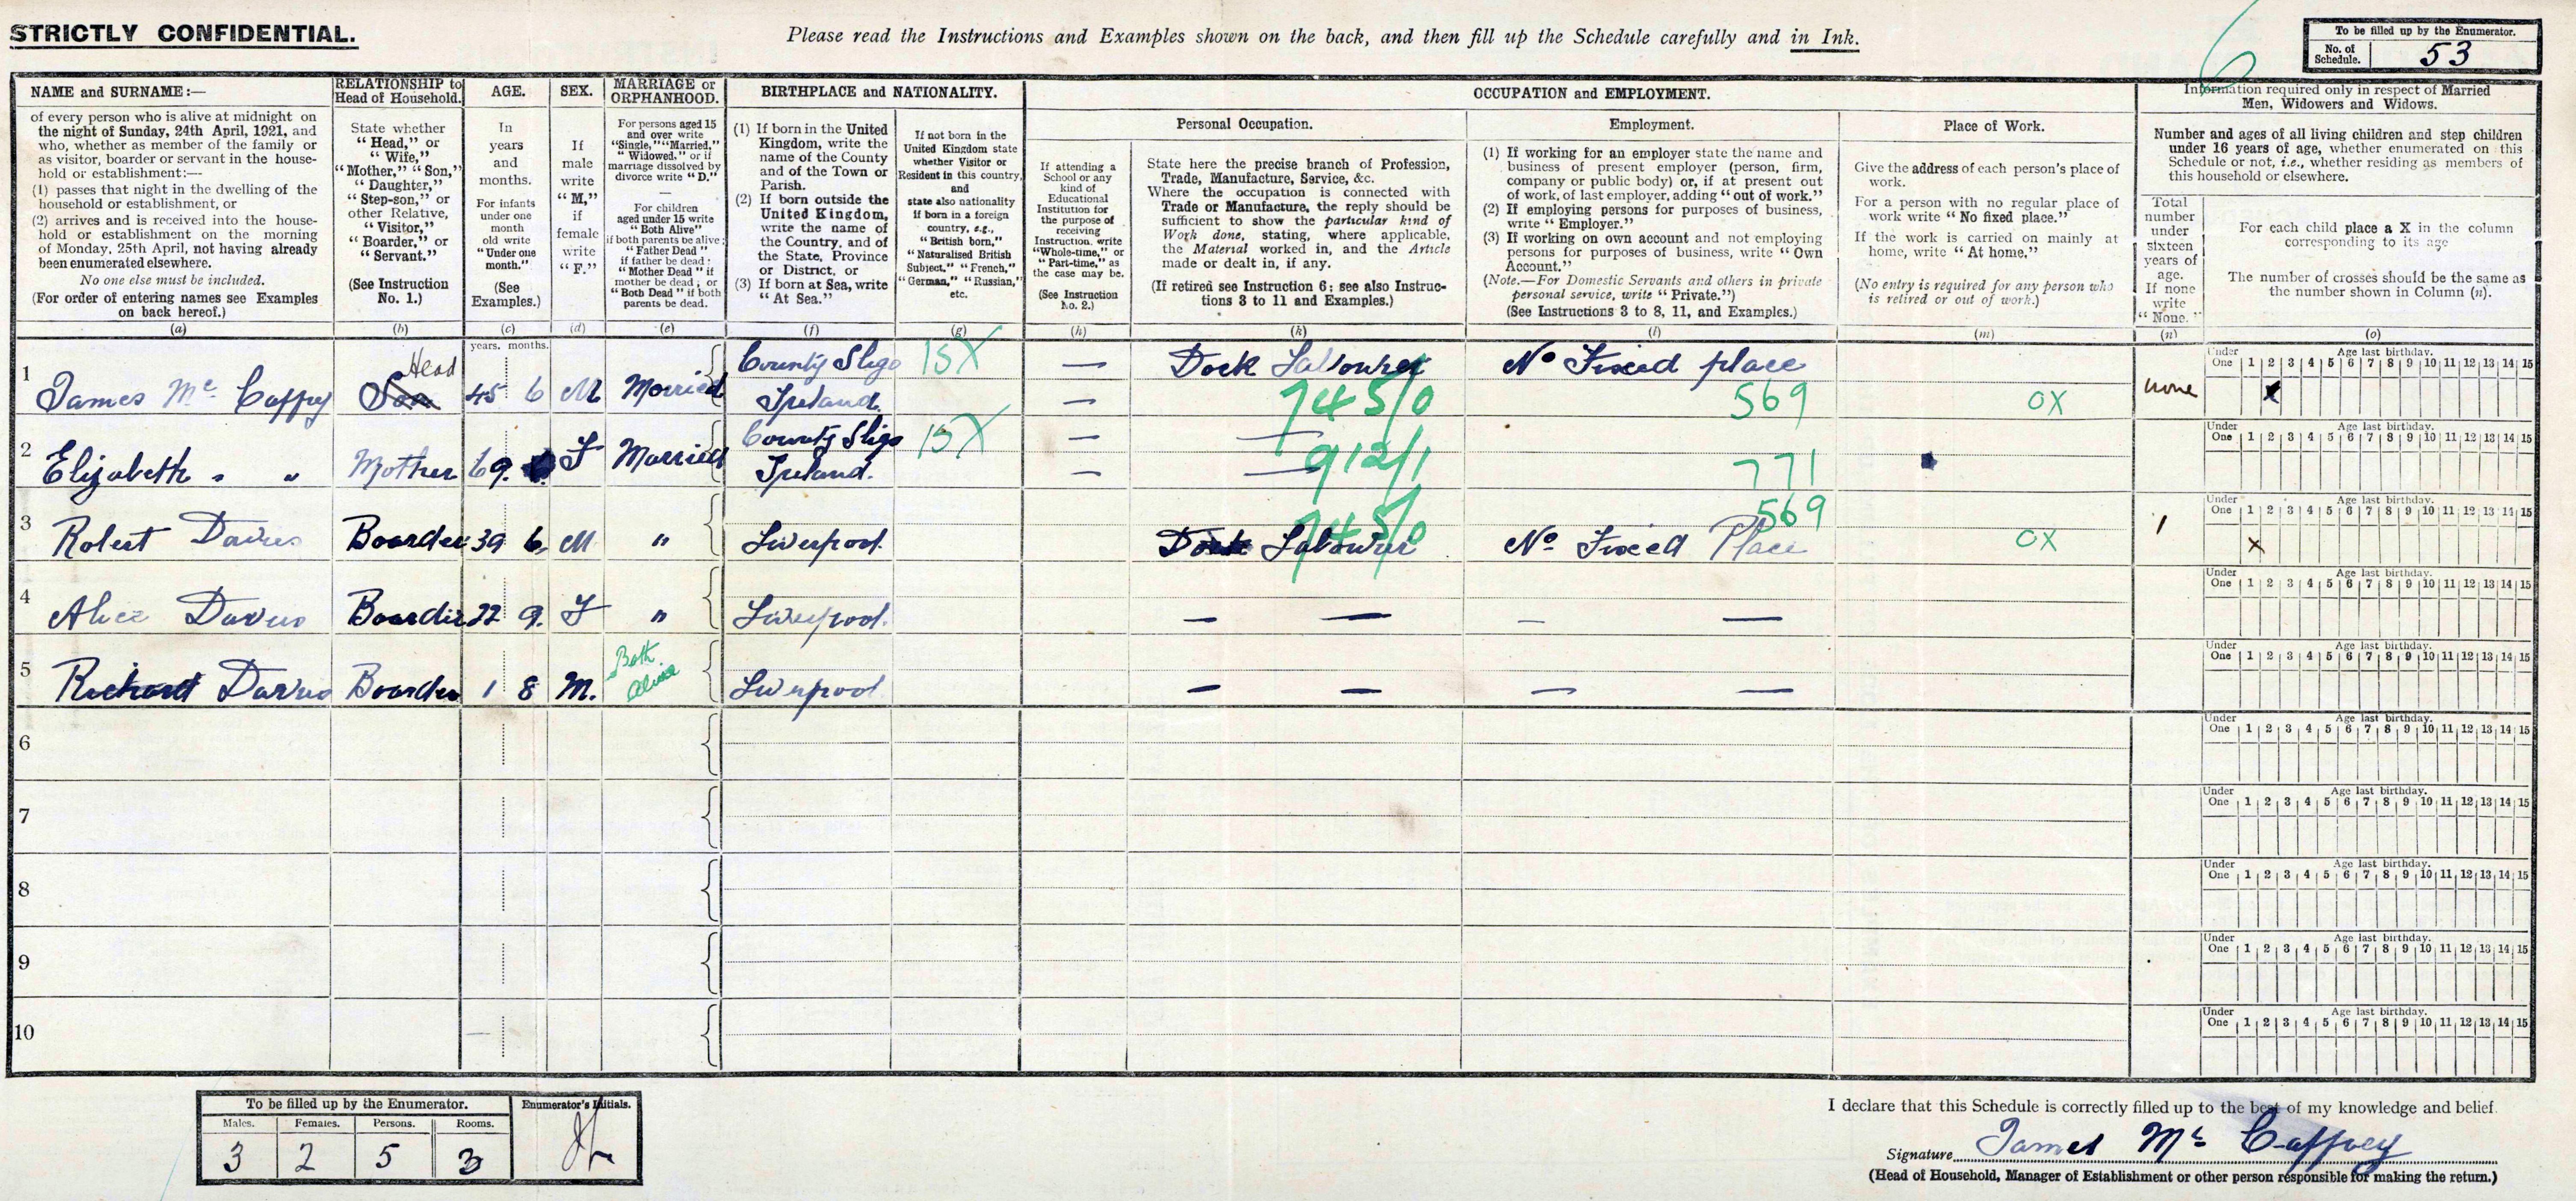 STRICTLY CONFIDENTIAL.
Please read the Instructions and Examples shown on the back, and then fill up the Schedule carefully and in Ink.
6
To be filled up by the Enumerator.
No. of Schedule. 53
NAME and SURNAME:—
of every person who is alive at midnight on
the night of Sunday, 24th April, 1921, and
who, whether as member of the family or
as visitor, boarder or servant in the house-
hold or establishment:—
(1) passes that night in the dwelling of the
household or establishment, or
(2) arrives and is received into the house-
hold or establishment on the morning
of Monday, 25th April, not having already
been enumerated elsewhere.
No one else must be included.
(For order of entering names see Examples
on back hereof.)
(a)
RELATIONSHIP to
Head of Household.
State whether
"Head," or
"Wife,"
"Mother," "Son,"
"Daughter,"
"Step-son," or
other Relative,
"Visitor,"
"Boarder," or
"Servant."
(See Instruction
No. 1.)
(b)
AGE.
In
years
and
months.
For infants
under one
month
old write
"Under one
month."
(See
Examples.)
(c)
SEX.
If
male
write
"M,"
if
female
write
"F."
(d)
MARRIAGE or
ORPHANHOOD.
For persons aged 15
and over write
"Single," "Married,"
"Widowed," or if
marriage dissolved by
divorce write "D."
—
For children
aged under 15 write
"Both Alive"
if both parents be alive;
"Father Dead"
if father be dead;
"Mother Dead" if
mother be dead; or
"Both Dead" if both
parents be dead.
(e)
BIRTHPLACE and NATIONALITY.
(1) If born in the United
Kingdom, write the
name of the County
and of the Town or
Parish.
(2) If born outside the
United Kingdom,
write the name of
the Country, and of
the State, Province
or District, or
(3) If born at Sea, write
"At Sea."
(f)
If not born in the
United Kingdom state
whether Visitor or
Resident in this country,
and
state also nationality
if born in a foreign
country, e.g.,
"British born,"
"Naturalised British
Subject," "French,"
"German," "Russian,"
etc.
(g)
OCCUPATION and EMPLOYMENT.
If attending a
School or any
kind of
Educational
Institution for
the purpose of
receiving
Instruction, write
"Whole-time," or
"Part-time," as
the case may be.
(See Instruction
No. 2.)
(h)
Personal Occupation.
State here the precise branch of Profession,
Trade, Manufacture, Service, &c.
Where the occupation is connected with
Trade or Manufacture, the reply should be
sufficient to show the particular kind of
Work done, stating, where applicable,
the Material worked in, and the Article
made or dealt in, if any.
(If retired see Instruction 6; see also Instruc-
tions 3 to 11 and Examples.)
(k)
Employment.
(1) If working for an employer state the name and
business of present employer (person, firm,
company or public body) or, if at present out
of work, of last employer, adding "out of work."
(2) If employing persons for purposes of business,
write "Employer."
(3) If working on own account and not employing
persons for purposes of business, write "Own
Account."
(Note.—For Domestic Servants and others in private
personal service, write "Private.")
(See Instructions 3 to 8, 11, and Examples.)
(l)
Place of Work.
Give the address of each person's place of
work.
For a person with no regular place of
work write "No fixed place."
If the work is carried on mainly at
home, write "At home."
(No entry is required for any person who
is retired or out of work.)
(m)
Information required only in respect of Married
Men, Widowers and Widows.
Number and ages of all living children and step children
under 16 years of age, whether enumerated on this
Schedule or not, i.e., whether residing as members of
this household or elsewhere.
Total
number
under
sixteen
years of
age.
If none
write
"None."
(n)
For each child place a X in the column
corresponding to its age
The number of crosses should be the same as
the number shown in Column (n).
(o)
years. months.
Under One Age last birthday.
1 2 3 4 5 6 7 8 9 10 11 12 13 14 15
1 James Mc Caffry Son Head 45 6 M Married County Sligo Ireland. 15X — — Dock Labourer 745/0 No Fixed place 569 OX none x
Under One Age last birthday.
1 2 3 4 5 6 7 8 9 10 11 12 13 14 15
2 Elizabeth " " Mother 69. F Married County Sligo Ireland. 15X — — — — 912/1 771
Under One Age last birthday.
1 2 3 4 5 6 7 8 9 10 11 12 13 14 15
3 Robert Davies Boarder 39 6 M " Liverpool. Dock Labourer 745/0 No Fixed Place 569 OX 1 x
Under One Age last birthday.
1 2 3 4 5 6 7 8 9 10 11 12 13 14 15
4 Alice Davies Boarder 22 9. F " Liverpool. — — — —
Under One Age last birthday.
1 2 3 4 5 6 7 8 9 10 11 12 13 14 15
5 Richard Davies Boarder 1 8 M. Both alive Liverpool — — — —
Under One Age last birthday.
1 2 3 4 5 6 7 8 9 10 11 12 13 14 15
6
Under One Age last birthday.
1 2 3 4 5 6 7 8 9 10 11 12 13 14 15
7
Under One Age last birthday.
1 2 3 4 5 6 7 8 9 10 11 12 13 14 15
8
Under One Age last birthday.
1 2 3 4 5 6 7 8 9 10 11 12 13 14 15
9
Under One Age last birthday.
1 2 3 4 5 6 7 8 9 10 11 12 13 14 15
10
Under One Age last birthday.
1 2 3 4 5 6 7 8 9 10 11 12 13 14 15
To be filled up by the Enumerator.
Males. Females. Persons. Rooms.
3 2 5 3
Enumerator's Initials.
I declare that this Schedule is correctly filled up to the best of my knowledge and belief.
Signature James Mc Caffrey
(Head of Household, Manager of Establishment or other person responsible for making the return.)